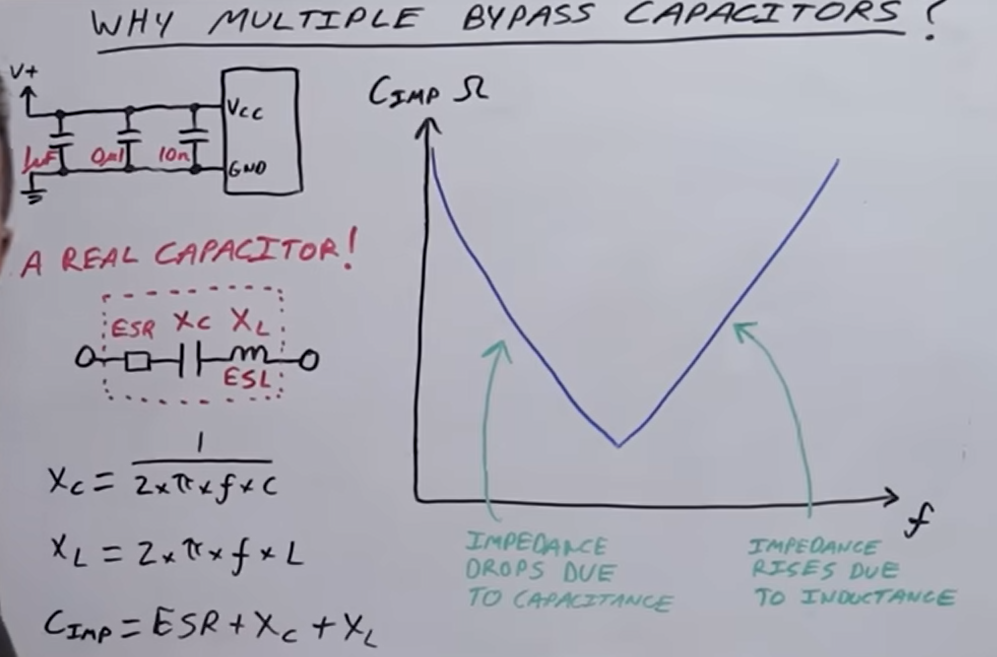 WHY MULTIPLE BYPASS CAPACITORS?
V+
VCC
1uF 0μ1 10n
GND
A REAL CAPACITOR!
ESR XC XL
ESL
XC = 1
2×π×f×C
XL = 2×π×f×L
CIMP = ESR + XC + XL
CIMP Ω
f
IMPEDANCE
DROPS DUE
TO CAPACITANCE
IMPEDANCE
RISES DUE
TO INDUCTANCE